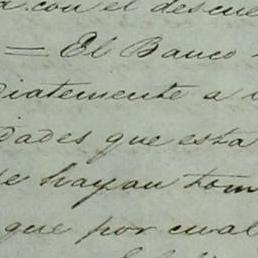 a con el descue
= El Banco
diatemente a
dades que esta
se hayan tom
que por cual